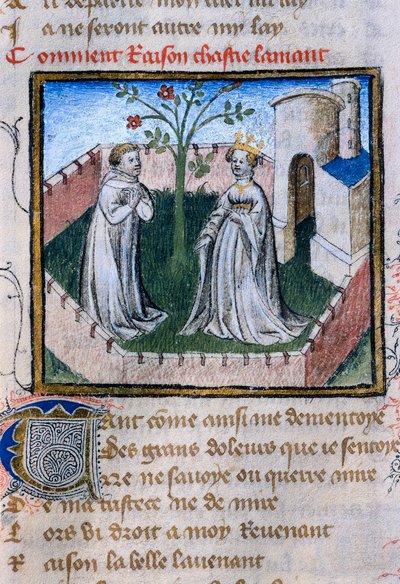 I a ne seront autre my lay
Comment Raison chastie lamant
Tant come ainsi me dementoye
Des grans doleurs que ie sentoye
Ne ne savoye ou querre mire
De ma tristece ne de mire
Lors vi droit a moy Revenant
Raison la belle lavenant